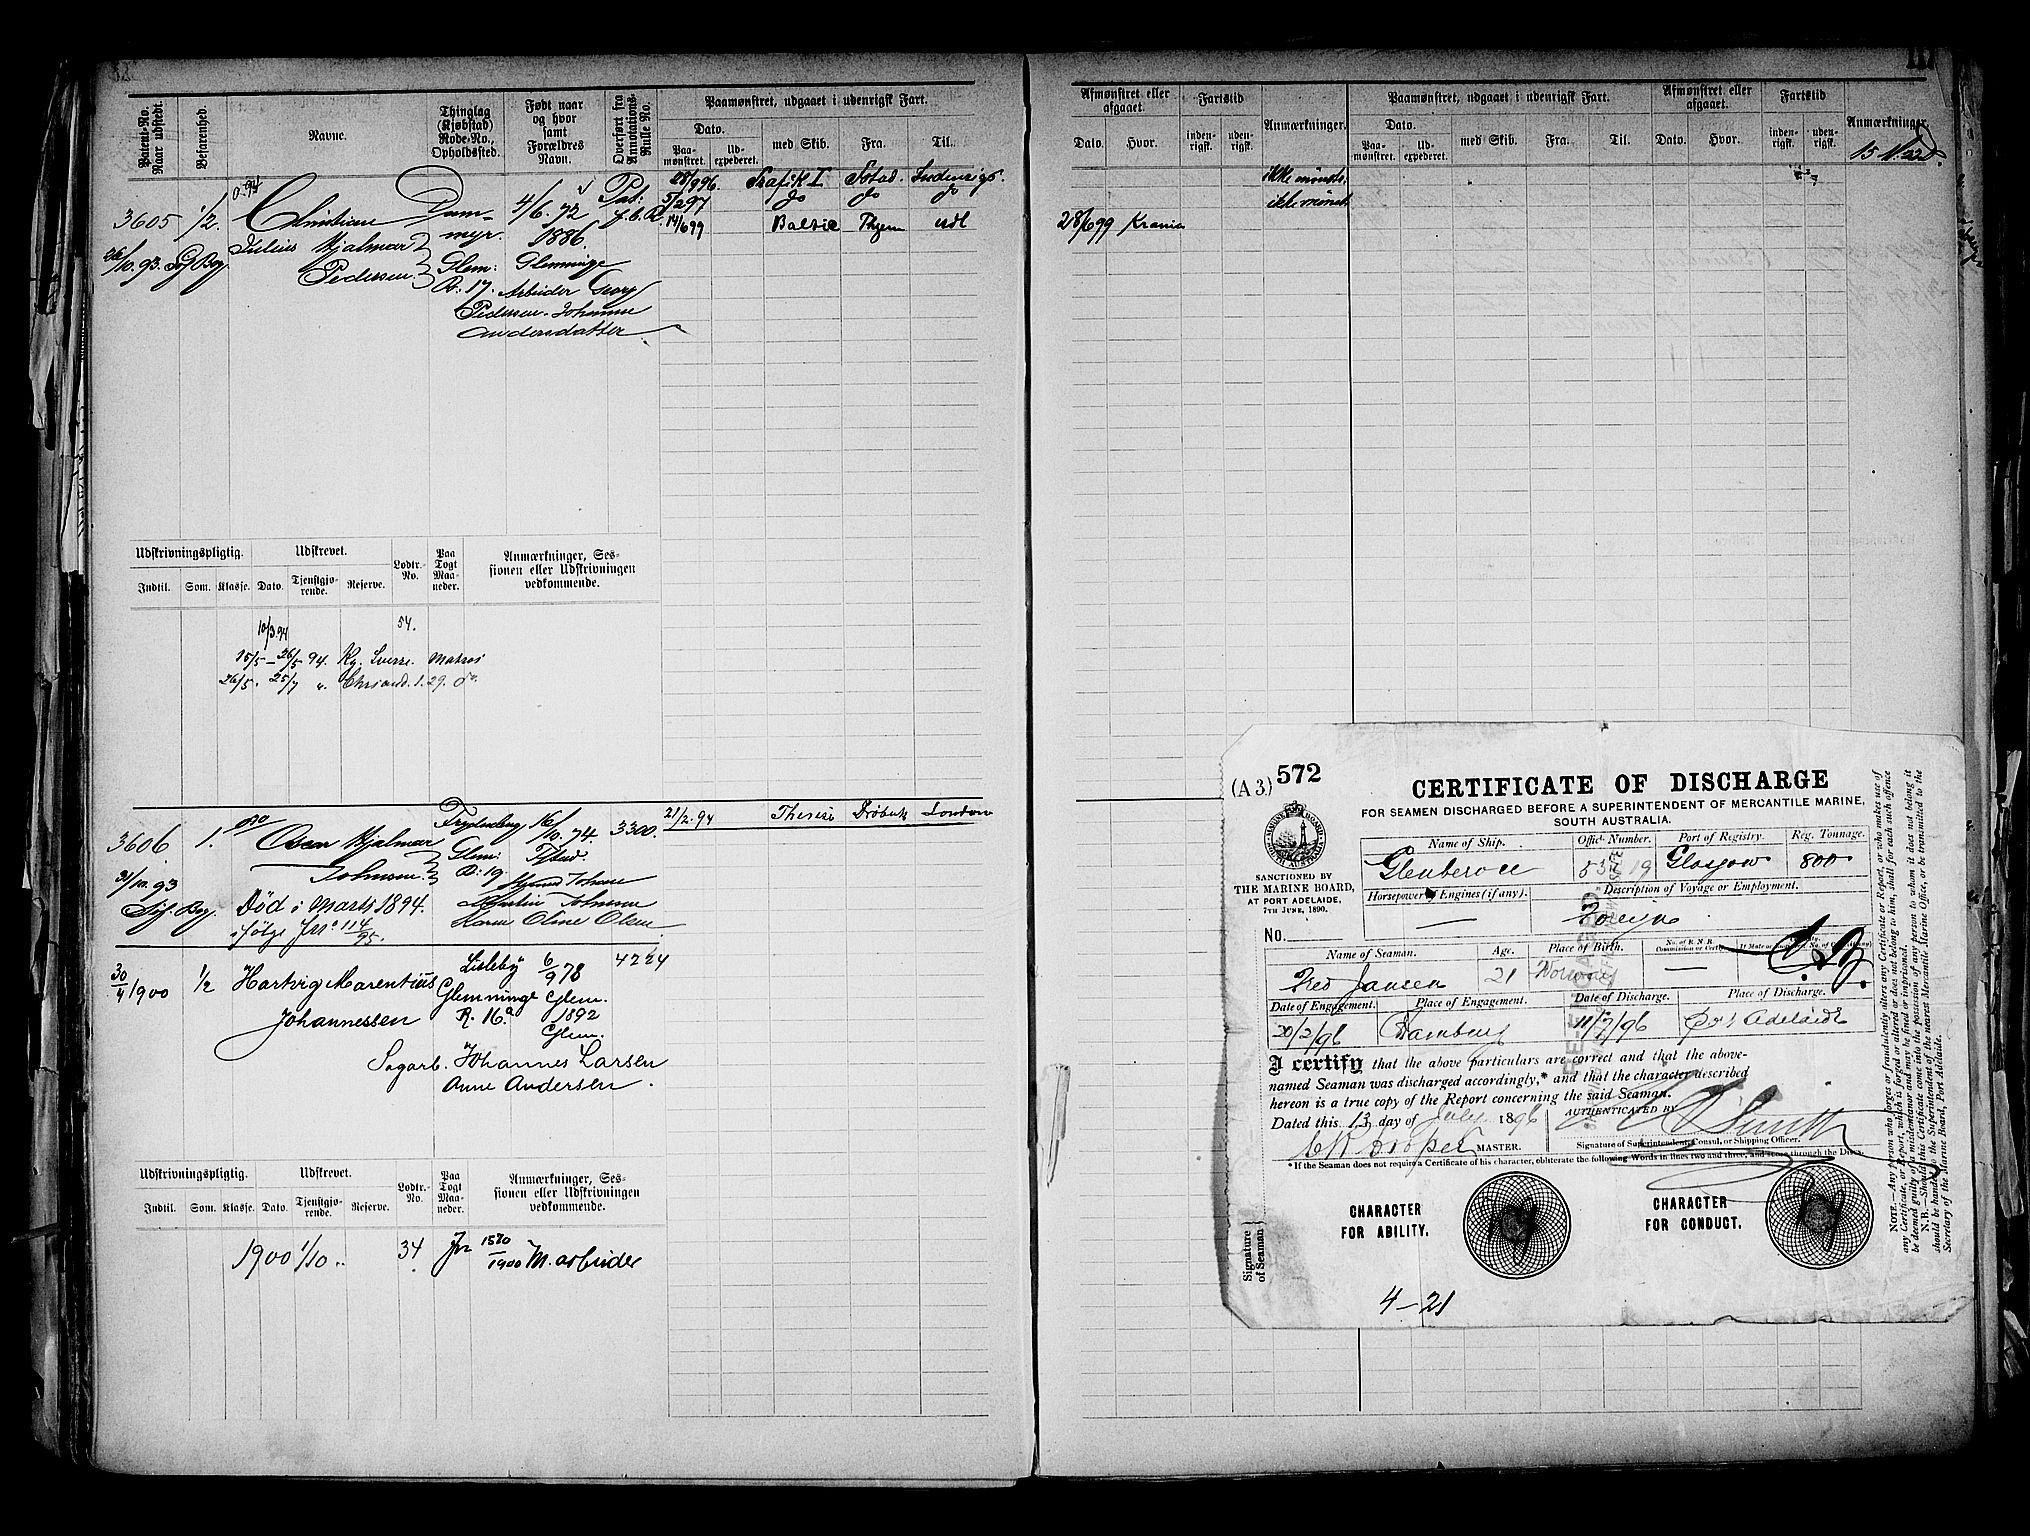 Patent-No. Naar udstedt.
Befarenhed.
Navne.
Thinglag (Kjøbstad) Rode-No., Opholdssted.
Født naar og hvor samt Forældres Navn.
Overført fra Annotations-Rulle No.
Paamønstret, udgaaet i udenrigsk Fart.
Dato.
Paa-mønstret.
Ud-expederet.
med Skib.
Fra.
Til.
3605 1/2.
Christian
Julius Hjalmar
Pedersen
26/10.93.
Dam-
myr.
Glem:
R. 17.
4/6. 72
1886.
Glemminge
Arbeider Georg
Pedersen. Johanne
Andersdatter
28/9 96. Trafik I
5/2 97 do do do
14/6 99
Udskrivningspligtig.
Udskrevet.
Lodtr.-No.
Paa Togt Maa-neder.
Anmærkninger, Ses-
sionen eller Udskrivningen
vedkommende.
Indtil. Som. Klasse. Dato. Tjenstgjø-rende. Reserve.
10/3.94 54.
15/5 – 26/5 94. Kg. Sverre. Matros
26/5. 25/7 " 1. 29. do.
3606 1. Oscar Hjalmar
Johnsen.
31/10.93
Død i Marts 1894.
ifølge Jrn 114/95.
Glem:
R. 19.
16/10. 74.
3300.
Martin Johnsen
Karen Oline Olsen
21/2. 94 Therese Drøbak London
30/4 1900 1/2 Hartvig Marentius
Johannessen
Lisleby
Glemminge
R. 16.a
6/9 78
Glem.
1892
Glem.
4224
Sagarb. Johannes Larsen
Anne Andersen.
Udskrivningspligtig.
Udskrevet.
Lodtr.-No.
Paa Togt Maa-neder.
Anmærkninger, Ses-
sionen eller Udskrivningen
vedkommende.
Indtil. Som. Klasse. Dato. Tjenstgjø-rende. Reserve.
1900 1/10 .. 34 Jrn 1570/1900 M. arbeider
Afmønstret eller afgaaet.
Fartstid
Anmærkninger.
Paamønstret, udgaaet i udenrigsk Fart.
Afmønstret eller afgaaet.
Fartstid
Anmærkninger.
Dato. Hvor. inden-rigsk. uden-rigsk.
Dato. Paa-mønstret. Ud-expederet. med Skib. Fra. Til.
Dato. Hvor. inden-rigsk. uden-rigsk.
ikke mønstr.
ikke mønst.
28/6 99 Krania
(A 3.) 572
CERTIFICATE OF DISCHARGE
FOR SEAMEN DISCHARGED BEFORE A SUPERINTENDENT OF MERCANTILE MARINE,
SOUTH AUSTRALIA.
SANCTIONED BY
THE MARINE BOARD,
AT PORT ADELAIDE,
7TH JUNE, 1890.
No.
Name of Ship. Offic'l Number. Port of Registry. Reg. Tonnage.
Glenbervie Glasgow 800
Horsepower of Engines (if any). Description of Voyage or Employment.
— Foreign
Name of Seaman. Age. Place of Birth.
Fred Jansen 21 Norway —
Date of Engagement. Place of Engagement. Date of Discharge. Place of Discharge.
20/2/96 Hamburg 11/7/96 Port Adelaide
I certify that the above particulars are correct and that the above-
named Seaman was discharged accordingly,* and that the character described
hereon is a true copy of the Report concerning the said Seaman.
Dated this 13 day of July 1896
AUTHENTICATED BY
MASTER.
Signature of Superintendent, Consul, or Shipping Officer.
* If the Seaman does not require a Certificate of his character, obliterate the following Words in lines two and three, and score through the Discs.
Signature of Seaman
CHARACTER
FOR ABILITY.
CHARACTER
FOR CONDUCT.
4–21
NOTE.—Any person who forges or fraudulently alters any Certificate or Report, or who makes use of
any Certificate, or Report, which is forged or altered or does not belong to him, shall for each such offence
be deemed guilty of a misdemeanor and may be fined or imprisoned.
N.B.—Should this Certificate come into the possession of any person to whom it does not belong it
should be handed to the Superintendent of the nearest Mercantile Marine Office, or be transmitted to the
Secretary of the Marine Board, Port Adelaide.